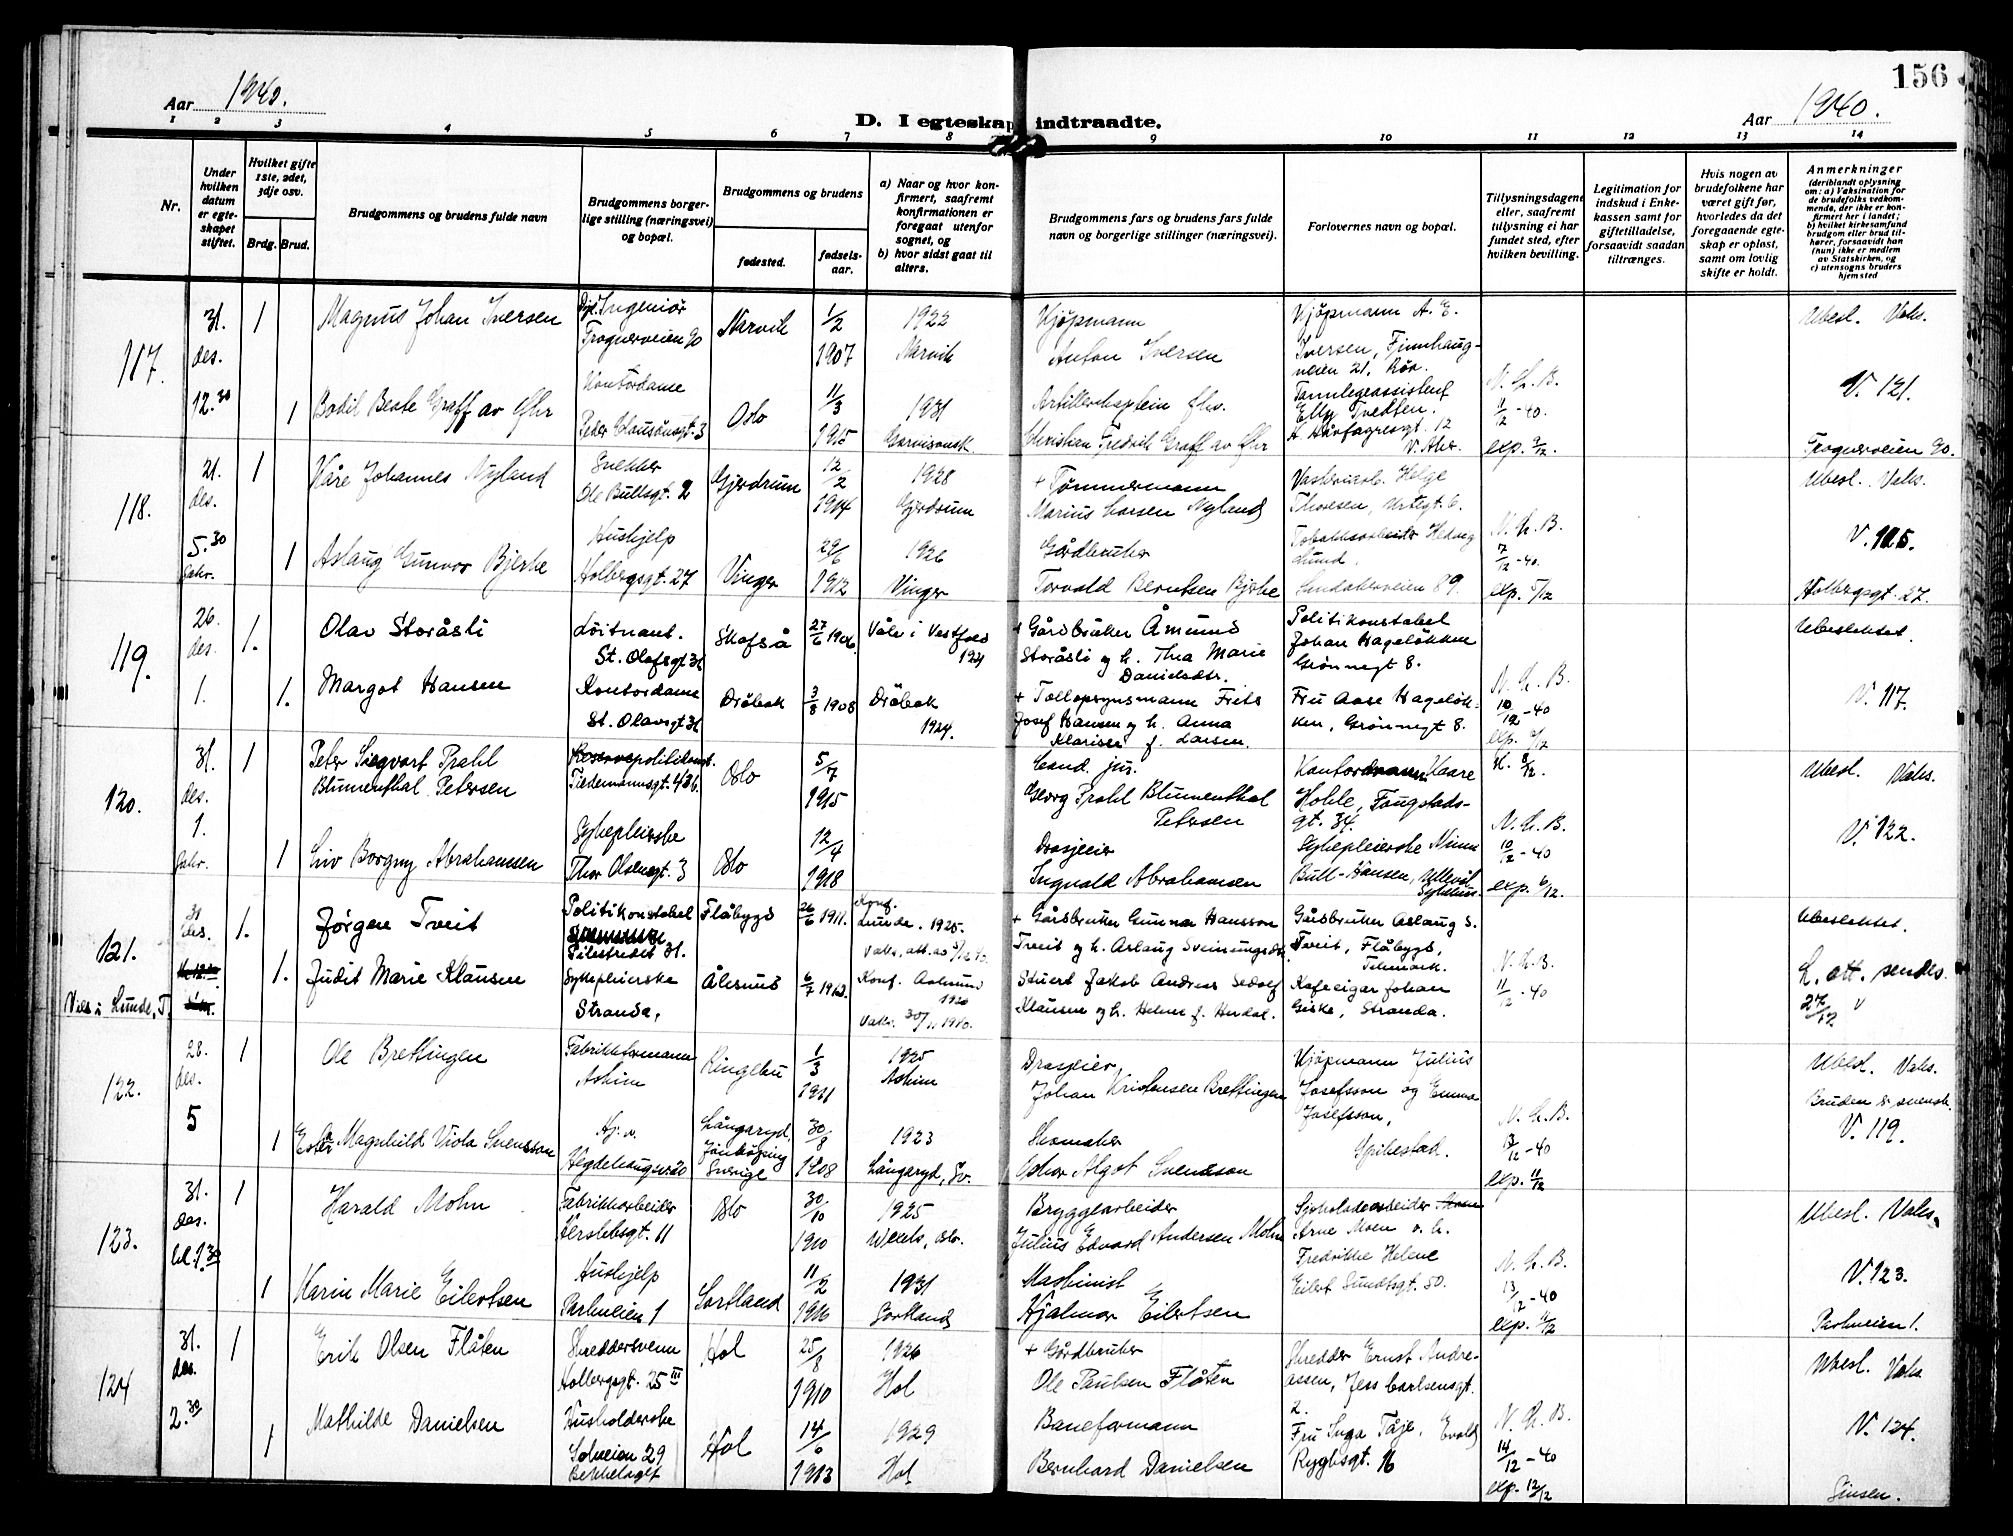 156
Aar 1940.
Aar 1940.
D. I egteskap indtraadte.
1 2 3 4 5 6 7 8 9 10 11 12 13 14
Nr.
Under hvilken datum er egteskapet stiftet.
Hvilket gifte 1ste, 2det, 3dje osv.
Brdg. Brud.
Brudgommens og brudens fulde navn
Brudgommens og brudens borgerlige stilling (næringsvei) og bopæl.
Brudgommens og brudens
fødested.
fødselsaar.
a) Naar og hvor konfirmert, saafremt konfirmationen er foregaat utenfor sognet, og
b) hvor sidst gaat til alters.
Brudgommens fars og brudens fars fulde navn og borgerlige stillinger (næringsvei).
Forlovernes navn og bopæl.
Tillysningsdagene eller, saafremt tillysning ei har fundet sted, efter hvilken bevilling.
Legitimation for indskud i Enkekassen samt for giftetilladelse, forsaavidt saadan tiltrænges.
Hvis nogen av brudefolkene har været gift før, hvorledes da det foregaaende egteskap er opløst, samt om lovlig skifte er holdt.
Anmerkninger
(deriblandt oplysning om: a) Vaksination for de brudefolks vedkommende, der ikke er konfirmert her i landet; b) hvilket kirkesamfund brudgom eller brud tilhører, forsaavidt han (hun) ikke er medlem av Statskirken, og c) utensogns bruders hjemsted
117. 31. des. 12.30
1 Magnus Johan Iversen Ingeniør Frognerveien 90 Narvik 1/2 1907 1922 Narvik Kjøpmann Anton Iversen Kjøpmann A. E. Iversen, Finnhaugveien 21, Røa. Ubesl. Vaks.
1 Bodil Beate Graff av Ghr Kontordame Peder Clausønsgt. 3 Oslo 11/3 1915 1931 Garnisonsk Artillerikaptein Christian Fredrik Graff av Ghr Tannlegeassistent Elly Tvedten. H Hårfagresgt. 12 V. Aker. N. L. B. 11/12-40. exp. 9/12. V. 121. Frognerveien 90.
118. 21. des. 5.30
1 Kåre Johannes Nyland Snekker Ole Bullsgt. 2 Gjerdrum 12/2 1914 1928 Gjerdrum + Tømmermann Marius Larsen Nyland Helge Thoresen, Urtegt. 6. Ubesl. Vaks.
1 Aslaug Gunvor Bjerke Hushjelp Holbergsgt. 27 Vinger 29/6 1912 1926 Vinger Gårdbruker Torvald Berntsen Bjerke Tobakksarbeider Hedvig Lund. Sandakerveien 89. N. L. B. 7/12-40. exp. 5/12 V. 125. Holbergsgt. 27.
119. 26. des. 1.
1. Olav Storåsli Løitnant. St. Olafsgt 31 Skafså 27/6 1906 Våle i Vestfold 1921 + Gårdbruker Åmund Storåsli og h. Thea Marie Danielsdtr. Politikonstabel Johan Hageløkken Grønnegt 8. Ubeslektet.
1. Margot Hansen Kontordame St. Olavsgt 31 Drøbak 3/8 1908 Drøbak 1924. + Tollopsynsmann Frits Josef Hansen og h. Anna Klarisse f. Larsen. Fru Aase Hageløkken, Grønnegt 8. N. L. B. 10/12-40 V. 117.
120. 31. des. 1.
1 Peter Siegvart Prahl Blumenthal Petersen Reservepolitikonst. Tiedemannsgt. 43b. Oslo 5/7 1915 Cand. jur. Georg Prahl Blumenthal Petersen Kaare Hohle, Fougstadsgt. 34. Ubesl. Vaks.
1 Liv Borgny Abrahamsen Sykepleierske Thor Olsensgt. 3 Oslo 12/4 1918 Drosjeeier Ingvald Abrahamsen Sykepleierske Bull-Hansen, Ullevål Sykehus. N. L. B. 10/12-40 exp. 6/12. V. 122.
121. 31 des. Vies i Lunde, T.
1. Jørgen Tveit Politikonstabel Pilestredet 31. Flåbygd 26/6 1911. Konf. Lunde. 1925. + Gårdbruker Gunnar Hansson Tveit og h. Aslaug Sveinungsdtr. Gårdbruker Aslaug S. Tveit, Flåbygd, Telemark. Ubeslektet.
1. Judit Marie Klausen Sykepleierske Stranda. Ålesund Konf. Aalesund Vaks. 30/11 1940. Stuert Jakob Andreas Sedolf Klausen og h. Helene f. Hurdal. Kafeeigar Johan Giske, Stranda. N. L. B. 11/12-40 L. att. sendes. 27/12
122. 28. des. 5
1 Ole Brettingen Fabrikkformann Askim Ringebu 1/3 1911 1925 Askim Drosjeeier Johan Kristensen Brettingen Kjøpmann Julius Josefsson og Emma Josefsson, Ubesl. Vaks. Bruden er svensk.
1 Ester Magnhild Viola Svensson Hj. v. Hegdehaugsv 20 Långaryd, Jönköping Sverige 30/8 1908 1923 Långaryd, Sv. Skomaker Oskar Algot Svensson N. L. B. exp. 11/12 V. 119.
123. 31. des. kl. 1.30
1 Harald Mohn Fabrikkarbeider Herslebsgt. 11 Oslo 30/10 1910 1925 Wexels, Oslo. Bryggearbeider Julius Edvard Andersen Mohn Sjokoladearbeider Arne Moen o. h. Fredrikke Helene Eilert Sundtsgt. 50. Ubesl. Vaks.
1 Karin Marie Eilertsen Hushjelp Parkveien 1 Sortland 11/2 1916 1931 Sortland Maskinist Hjalmar Eilertsen N. L. B. 13/12-40 exp. 11/12 V. 123. Parkveien 1.
124 31. des. 2.30
1 Erik Olsen Flåten Skreddersvenn Holbergsgt. 25 III Hol 25/8 1910 1926 Hol + Gårdbruker Ole Paulsen Flåten Skredder Ernst Andreassen, Jess Carlsensgt. 2. Ubesl. Vaks.
1 Mathilde Danielsen Husholderske Solveien 29 Bekkelaget Hol 1913 1929 Hol Baneformann Bernhard Danielsen Fru Inga Tåje, Evald Ryghsgt. 16 N. L. B. 14/12-40 exp. 12/12 V. 124. Sinsen.